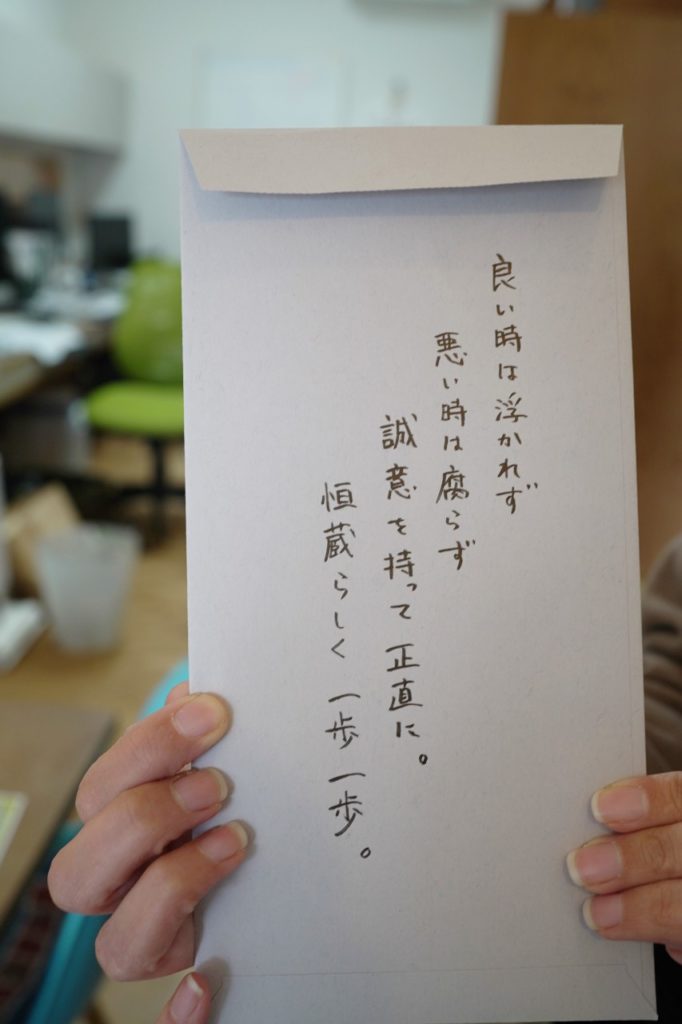 良い時は浮かれず
悪い時は腐らず
誠意を持って正直に。
恒蔵らしく一歩一歩。